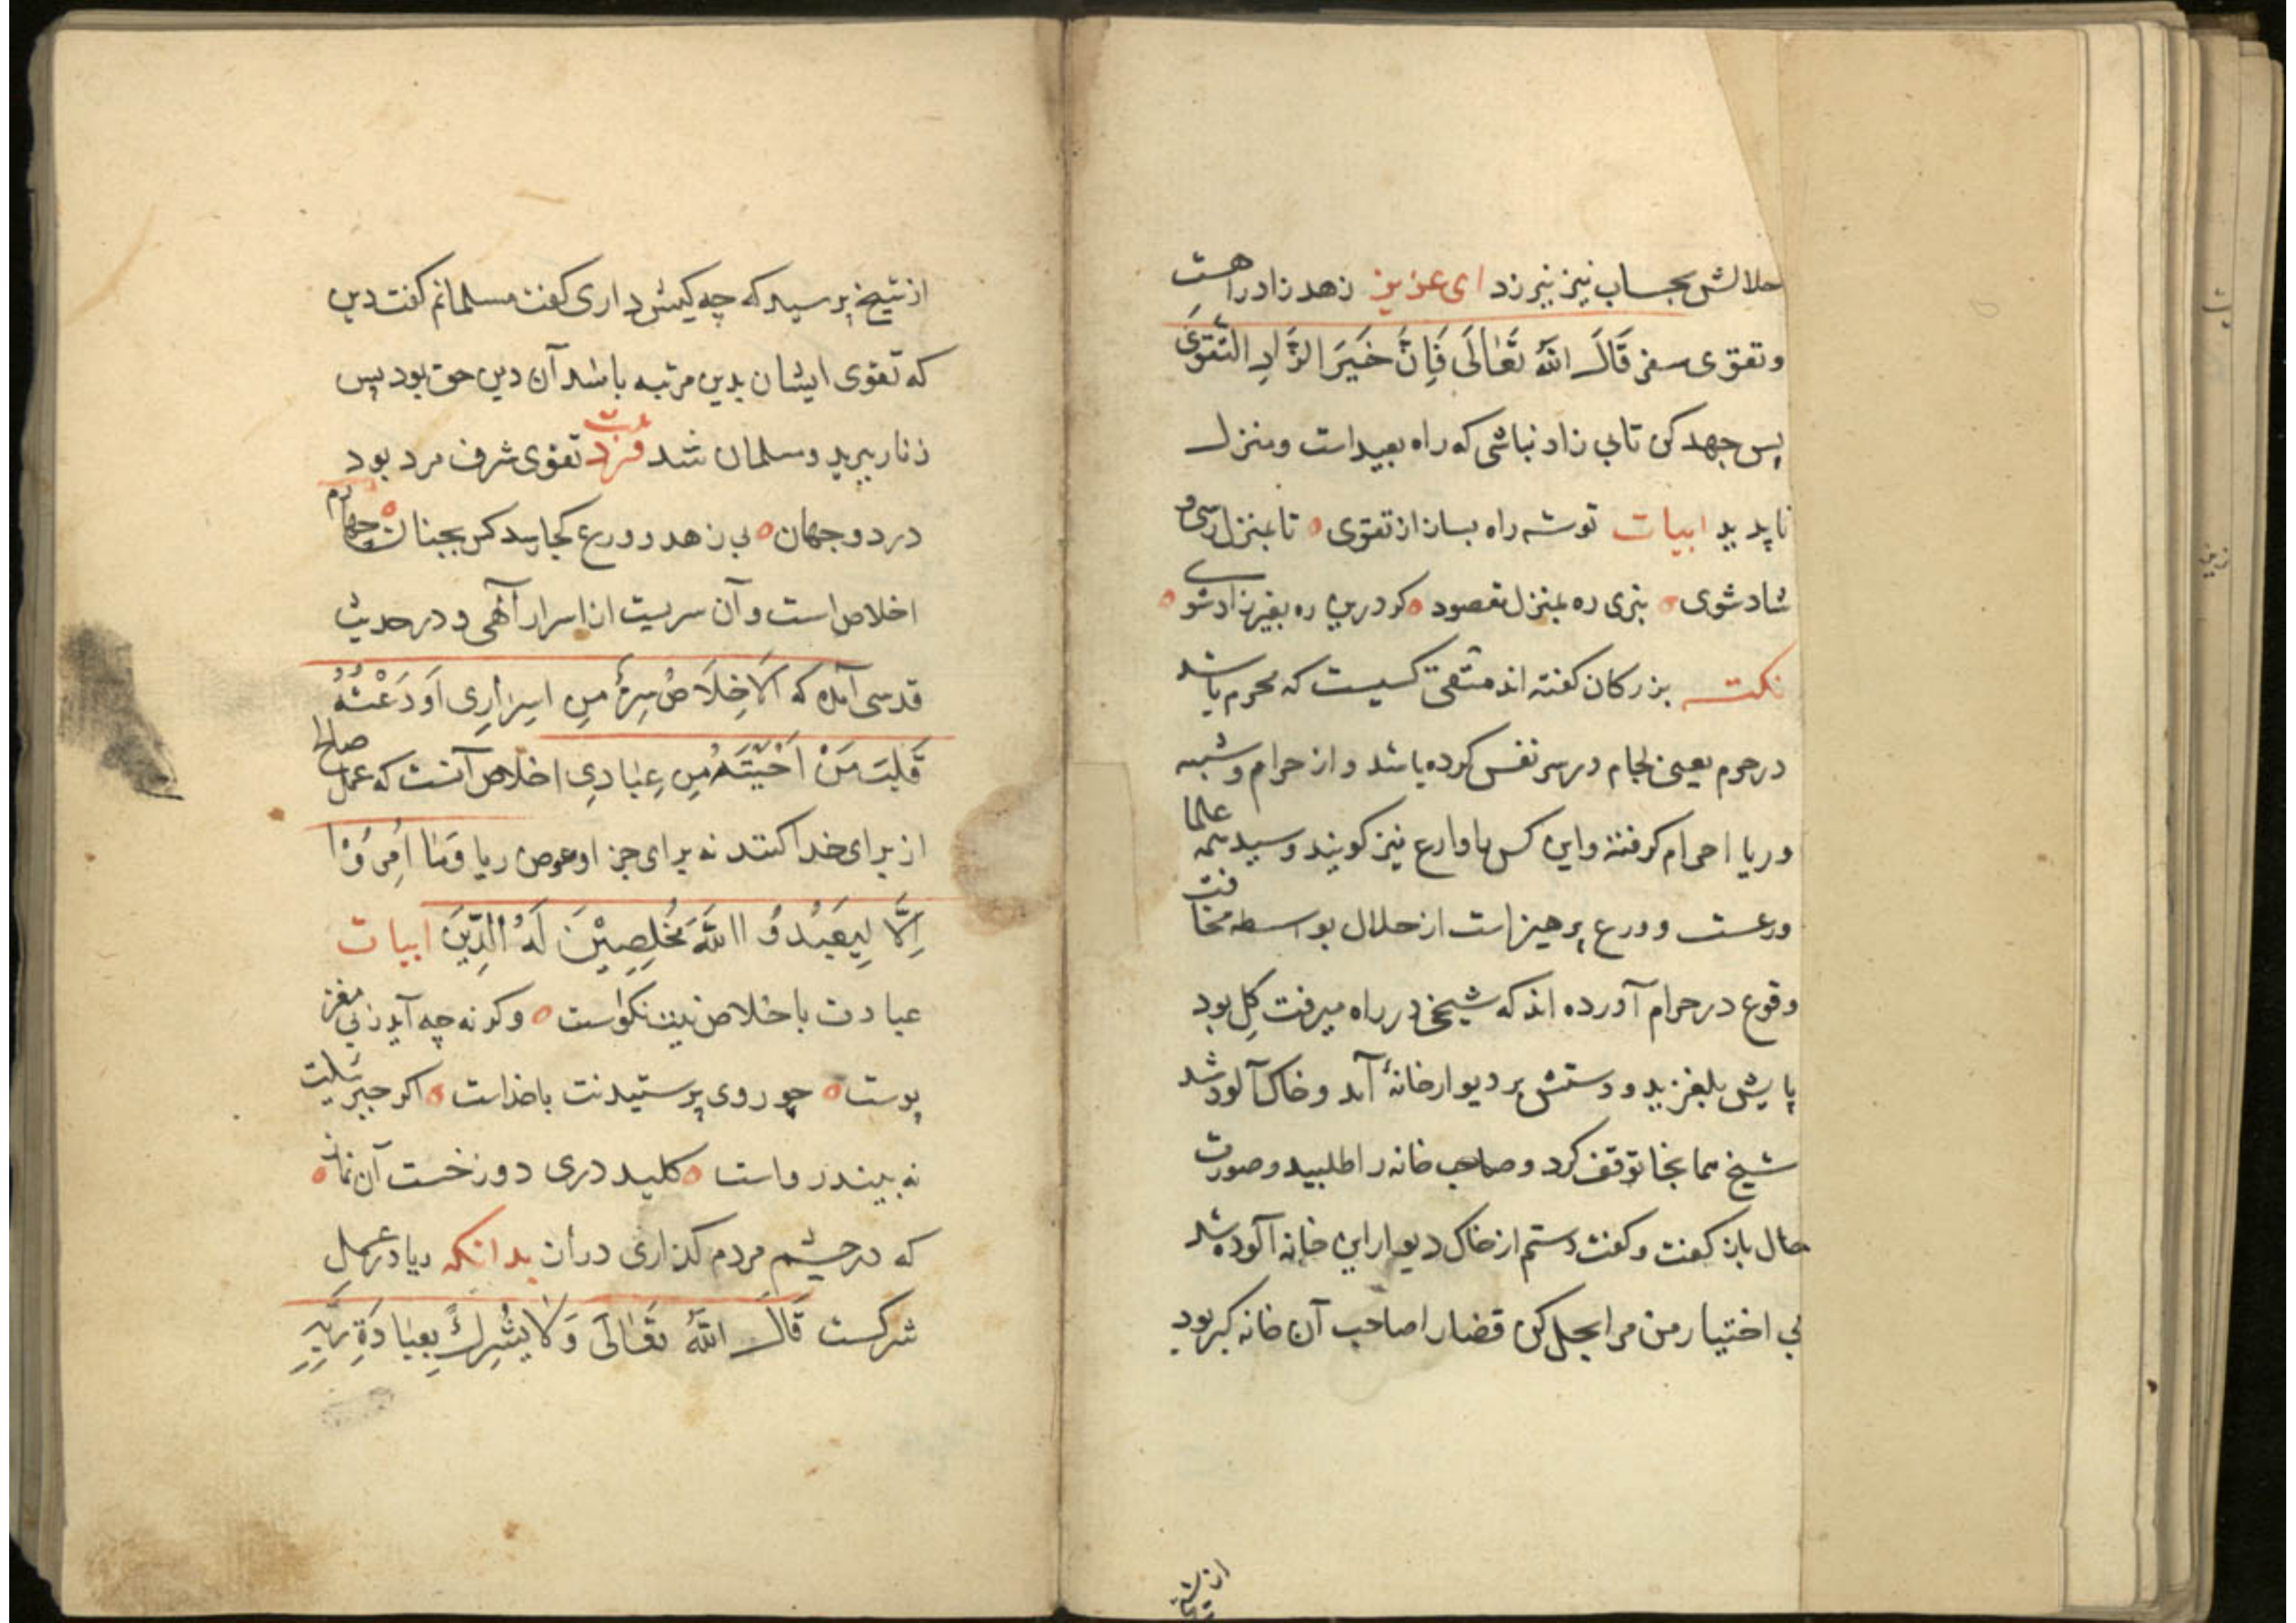 حلالش بحساب نیز نیرزد ای عزیز زهد زاد راهست
وتقوی سفر قَالَ اللّٰهُ تَعَالَى فَاِنَّ خَيرَ الزَّادِ التَّقوَى
پس جهد کن تا بی زاد نباشی که راه بعید است ومنزل
ناپدید ابیات توشه راه بساز از تقوی تا بمنزل رسی و
شاد شوی نبری ره بمنزل مقصود کر درین ره بغیر زاد شوی
نکته بزرکان کفته اند متقی کسیست که محرم باشد
در حرم یعنی لجام در سر نفس کرده باشد و از حرام و شبهه
وریا احرام کرفته واین کس را وارع نیز کویند وسید همه علما
ورعست و ورع پرهیز است از حلال بواسطه مخافت
وقوع در حرام آورده اند که شیخی در راه میرفت کِل بود
پایش بلغزید و دستش بر دیوار خانۀ آمد و خاک آلود شد
شیخ همانجا توقف کرد و صاحب خانه را طلبید و صورت
حال باز کفت و کفت دستم از خاک دیوار این خانه آلوده شد
بی اختیار من مرا بحل کن قضارا صاحب آن خانه کبر بود
از شیخ
از شیخ پرسید که چه کیش داری کفت مسلمانم کفت دین
که تقوی ایشان بدین مرتبه باشد آن دین حق بود پس
زنار ببرید و مسلمان شد فرد تقوی شرف مرد بود
در دو جهان بی زهد و ورع کجا رسد کس بجنان چهارم
اخلاص است و آن سریست از اسرار آلهی و در حدیث
قدسی آمده که اَلاِخلَاصُ سِرٌّ مِن اسرَارِی اَودَعْتُهُ
قَلبَ مَنْ اَحْبَبْتَهُ مِن عِبَادِی اخلاص آنست که عمل صالح
از برای خدا کنند نه برای جز او عوض ریا وَمَا اُمِرُوْا
اِلَّا لِيَعْبُدُوُا اللّٰهَ مُخْلِصِيْنَ لَهُ الدِّينَ ابیات
عبادت باخلاص نیت نکواست وکرنه چه آید ز بی مغز
پوست چو روی پرستیدنت با خداست اکر جبرئیلت
نه بیند رواست کلید دری دوزخست آن نماز
که در چشم مردم کذاری دراز بدانکه ریا در عمل
شرکست قَالَ اللّٰهُ تَعَالَى وَلَا يُشْرِكْ بِعِبَادَةِ رَبِّهِ